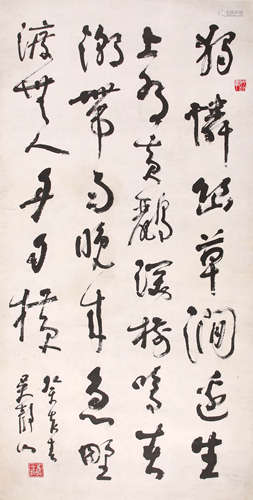 獨憐幽草澗邊生
上有黃鸝深樹鳴春
潮帶雨晚來急野
渡無人舟自橫
吳靜山